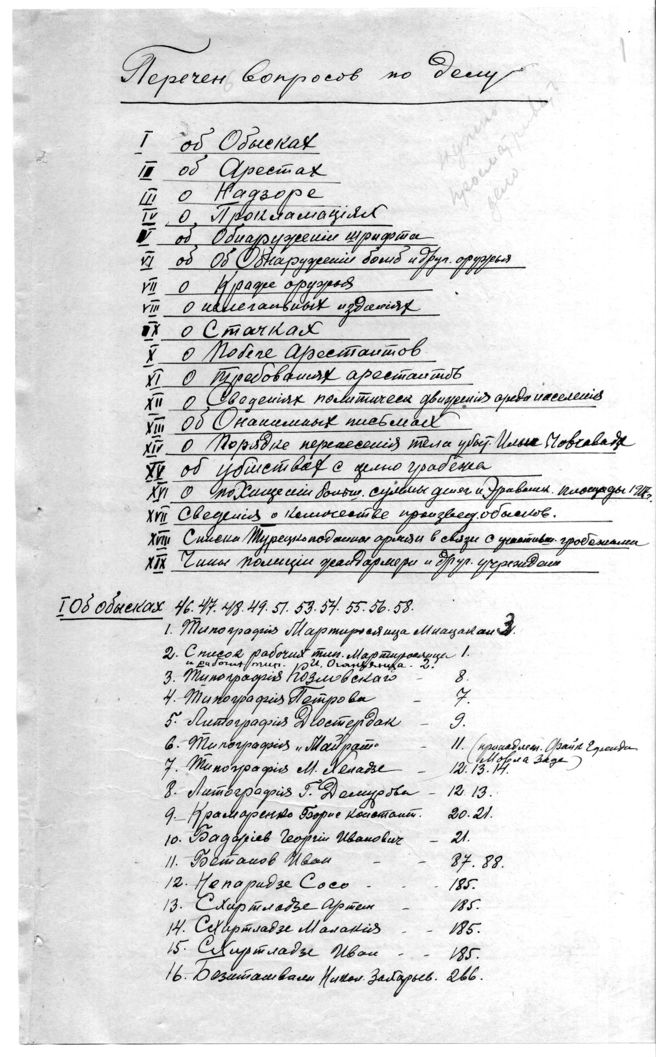 1
Перечен вопросов по делу
нужно
просматривать
дело.
I об Обысках
II об Арестах
III о Надзоре
IV о Прокламаціях
V об Обнаруженіи шрифта
VI об Об Обнаруженіи бомб и друг. оружья
VII о Краже оружья
VIII о нелегальных изданіях
IX о Стачках
X о Побеге Арестантов
XI о Требованіях арестантов
XII о Сведеніях политическ движенія среди населенія
XIII об Онанимных письмах
XIV о Порядке перенесенія тела убит. Ильи Човчавадзе
XV об убійствах с целью грабежа
XVI о похищеніи больш. суммы денег и Эриванск. площади 1907г.
XVII Сведенія о количестве произвед. обысков.
XVIII Списки Турецкоподанных армян в связи с участив. грабежами
XIX Чины полиціи жандармери и друг. учреждени
I Об обысках 46. 47. 48. 49. 51. 53. 54. 55. 56. 58.
1. Типографія Мартиросянца Мнацакан 3.
2. Список рабочих тип. Мартиросянца 1.
и рабочих тип. 2.
3. Типографія Козловскаго - 8.
4. Типографія Петрова - 7.
5. Литографія Дюстердик - 9.
6. Типографія „ - 11. (принадлеж. Эфенди
7. Типографія М. Хеладзе - 12. 13. 14.
8. Литографія Г. Демурова - 12. 13.
9. Крамаренко Борис Константин. 20. 21.
10. Бадаріев Георгій Иванович - 21.
11. Бетанов Иван - - 87. 88.
12. Непаридзе Сосо - - 185.
13. Схиртладзе Артем - 185.
14. Схиртладзе Малакія - - 185.
15. Схиртладзе Иван - - 185.
16. Безиташвили Никол. Захарьев. 266.